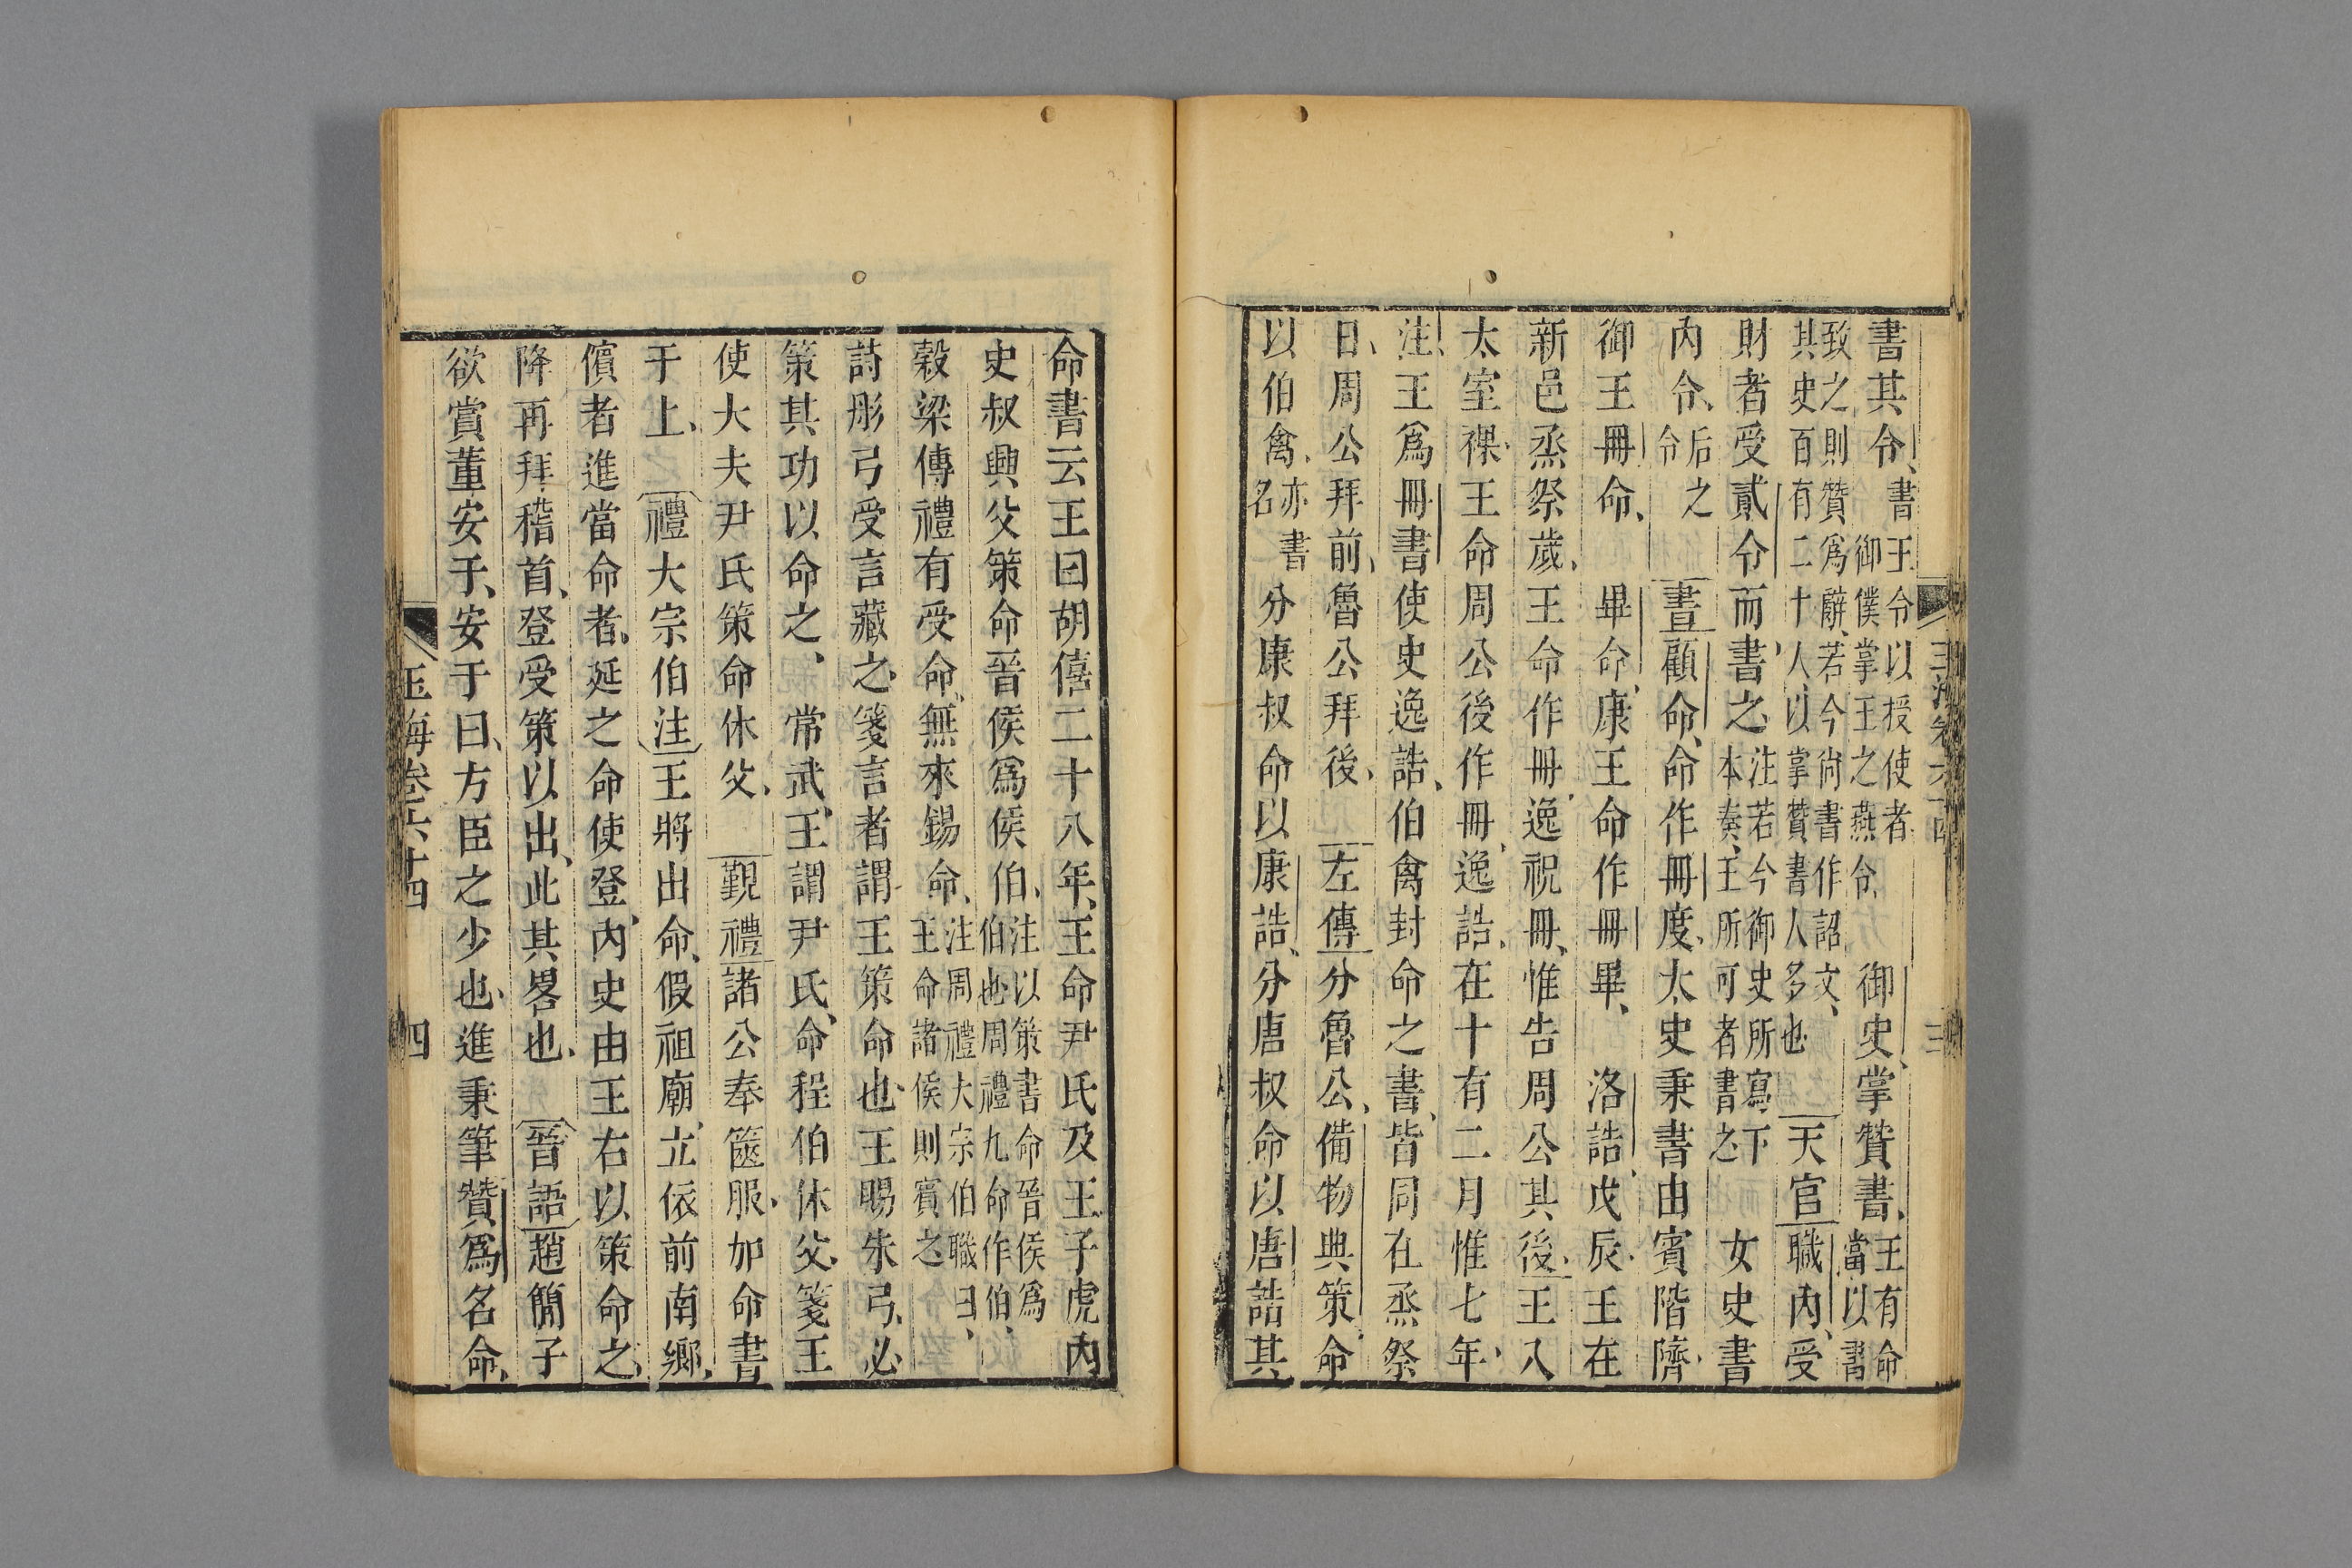 書其令、書王令以授使者御僕掌王之燕令、御史、掌贊書、王有命當以書
致之則贊爲辭、若今尚書作詔文、其史百有二十人、以掌贊書人多也天官職內、受
財者受貳令而書之、注若今御史所寫下本奏、王所可者書之女史書
內令、后之令書顧命、命作冊度、太史秉書由賓階隮、
御王冊命、畢命、康王命作冊畢、洛誥、戊辰、王在
新邑烝祭歲、王命作冊、逸祝冊、惟告周公其後、王入
太室祼、王命周公後作冊、逸誥、在十有二月惟七年、
注、王爲冊書使史逸誥、伯禽封命之書、皆同在烝祭
日、周公拜前、魯公拜後、左傳分魯公、備物典策、命
以伯禽、亦書名分康叔命以康誥、分唐叔命以唐誥其
命書云王曰胡僖二十八年、王命尹氏及王子虎內
史叔興父策命晉侯爲侯伯、注以策書命晉侯爲伯也周禮九命作伯、
穀梁傳禮有受命、無來錫命、注周禮大宗伯職曰、王命諸侯則賓之
詩彤弓受言藏之、箋言者謂王策命也、王賜朱弓、必
策其功以命之、常武、王謂尹氏、命程伯休父、箋王
使大夫尹氏策命休父、覲禮諸公奉篋服、加命書
于上、禮大宗伯注王將出命、假祖廟、立依前南鄉、
儐者進當命者、延之命使登、內史由王右以策命之、
降再拜稽首、登受策以出、此其畧也、晉語趙簡子
欲賞董安于、安于曰、方臣之少也、進秉筆贊爲名命、
玉海卷六十四 四